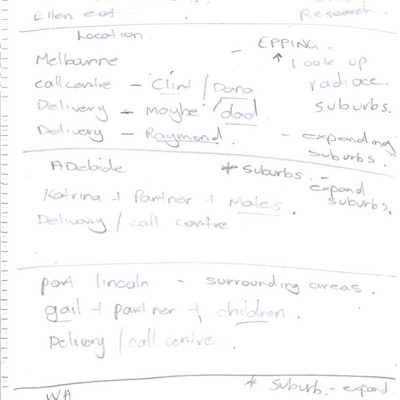 Ellen east Research.
Location. - EPPING.
Melbourne ↑ Look up
callcentre - Clint / Dana radiace.
Delivery - maybe / dad suburbs.
Delivery - Raymond. - expending suburbs.
ADelaide * suburbs. - expand suburbs.
Katrina + Partner + Males.
Delivery / call centre
port lincoln - surrounding areas.
gail + partner + children.
Delivery / call centre.
* suburb. - expand
WA